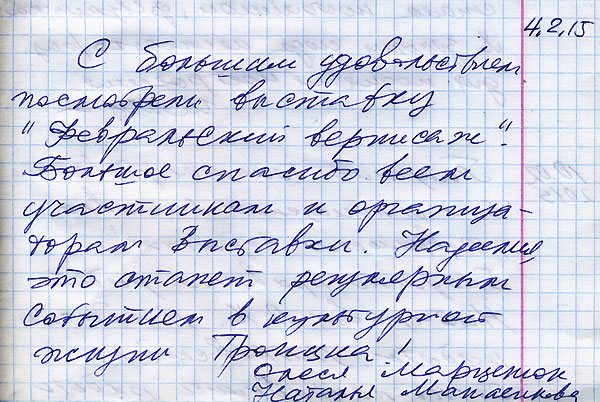 4.2.15
С большим удовольствием
посмотрели выставку
"Февральский вернисаж".
Большое спасибо всем
участникам и организа-
торам выставки. Надеемся,
это станет регулярным
событием в культурной
жизни Троицка!
Олеся Марценюк
Наталья